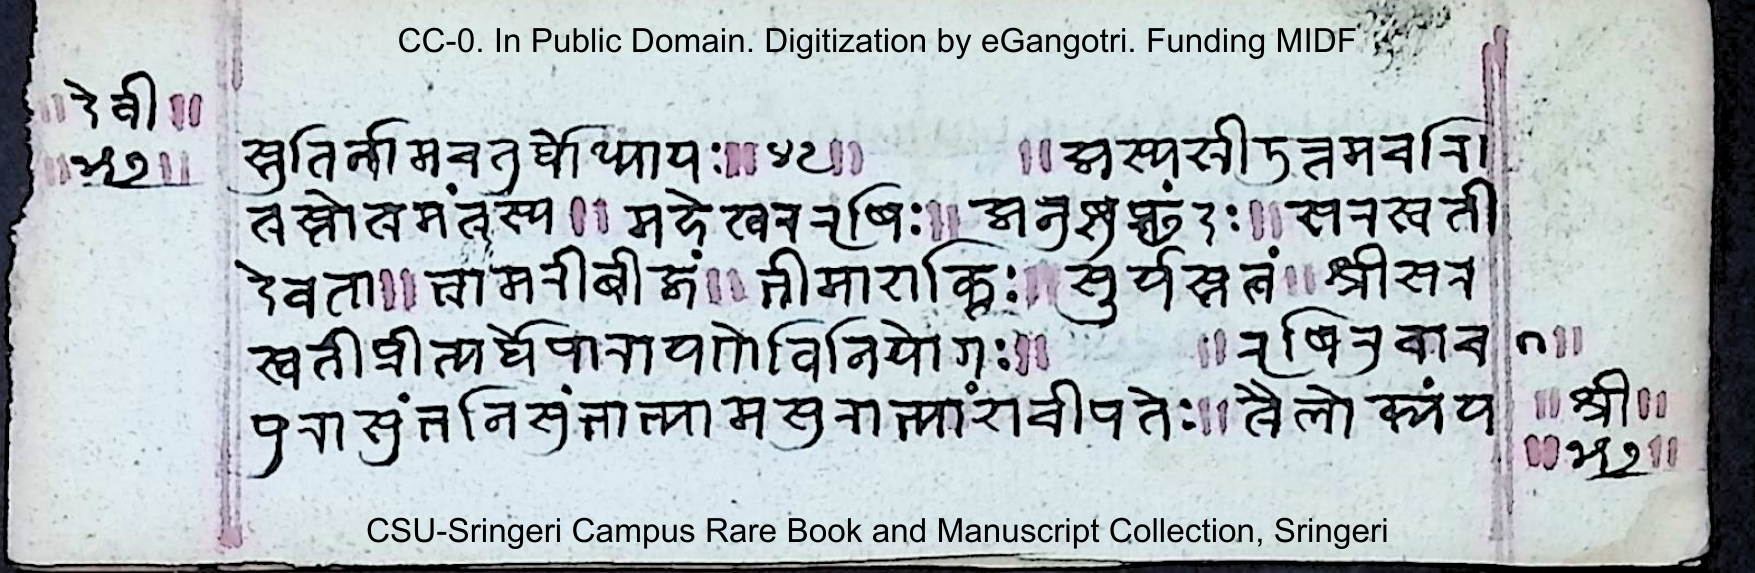 CC-0. In Public Domain. Digitization by eGangotri. Funding MIDF
॥देवी॥
॥५७॥
स्तुतिर्नामचतुर्थोध्यायः॥४८॥ ॥अस्यस्रीउत्तमचरित्रि
तस्तोत्रमंत्रस्य॥ मदेस्वररृषिः॥ अनुष्टुप्छंदः॥ सरस्वती
देवता॥ भ्रामरीबीजं॥ भीमाशक्तिः॥ सुर्यस्तत्वं॥ श्रीसर
स्वतीप्रीत्यर्थेपारायणेविनियोगः॥ ॥रृषिरुवाच ॥
पुरासुंभनिसुंभाभ्यामसुराभ्यांशचीपतेः॥ त्रैलोक्यंय
॥श्री॥
॥५७॥
CSU-Sringeri Campus Rare Book and Manuscript Collection, Sringeri